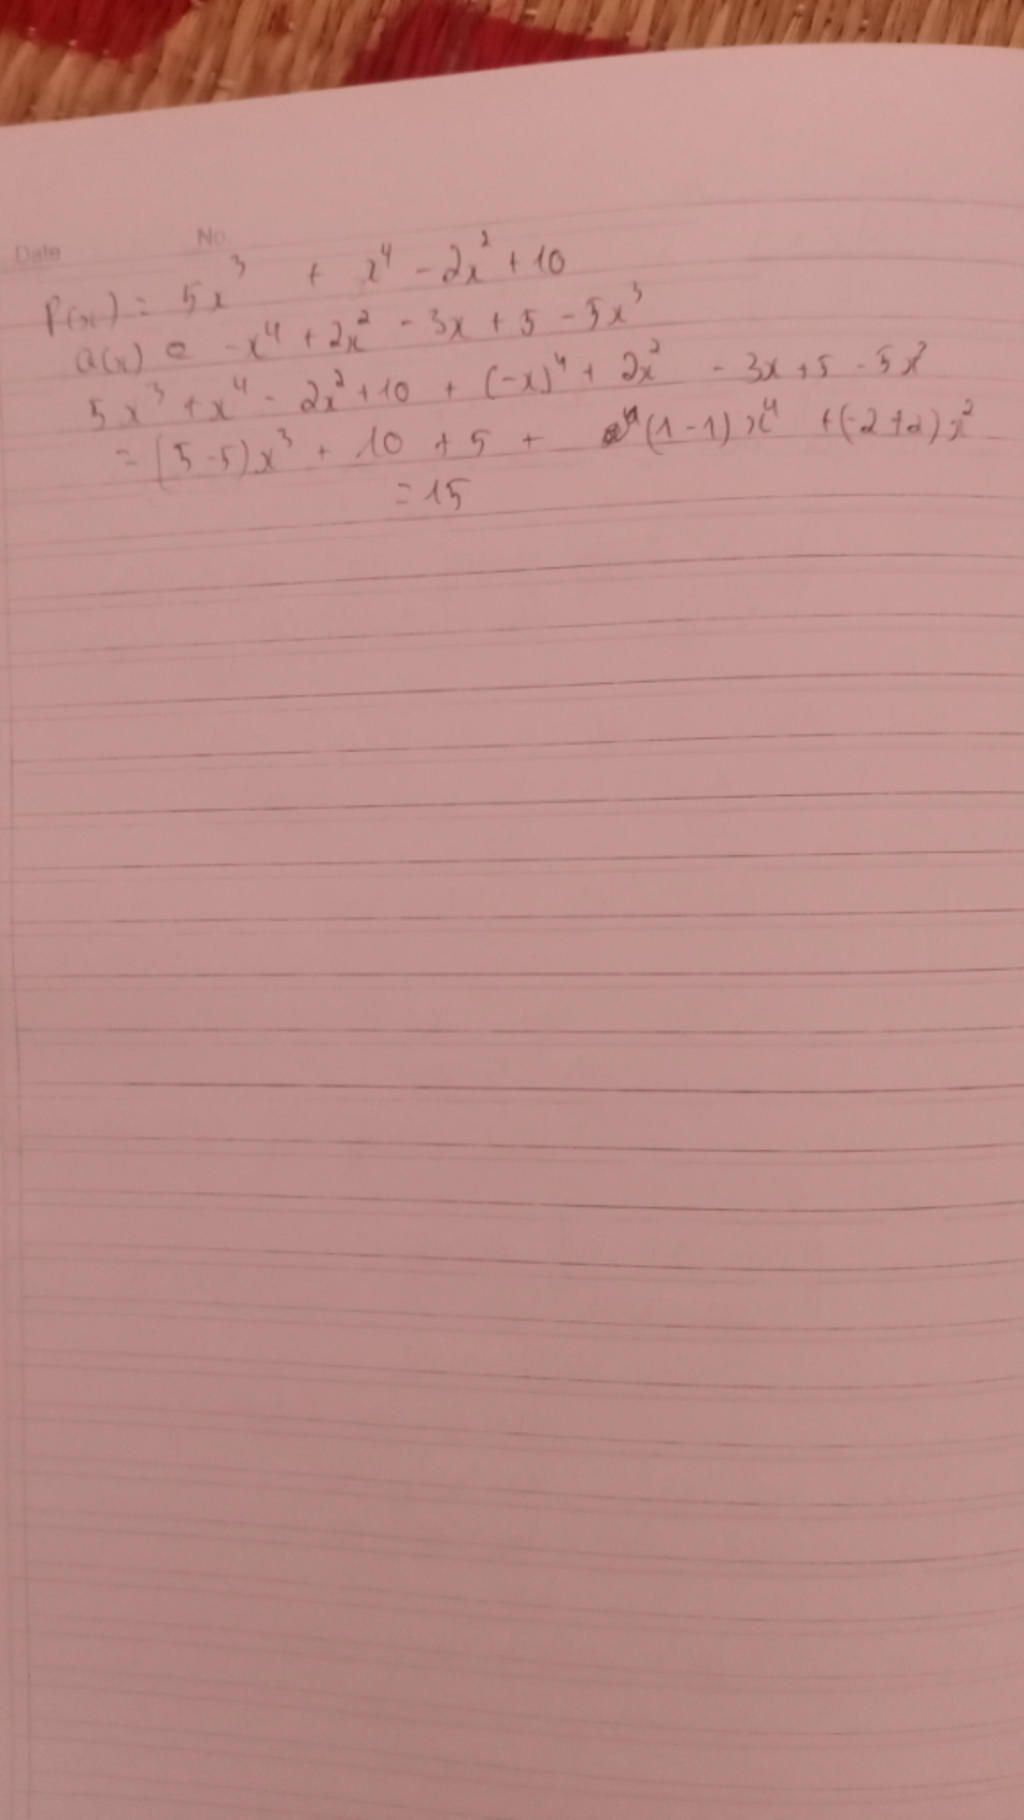 Date No.
P(x) = 5x³ + x⁴ - 2x² + 10
Q(x) = -x⁴ + 2x² - 3x + 5 - 5x³
5x³ + x⁴ - 2x² + 10 + (-x)⁴ + 2x² - 3x + 5 - 5x³
= (5-5)x³ + 10 + 5 + (1-1)x⁴ + (-2+2)x²
= 15